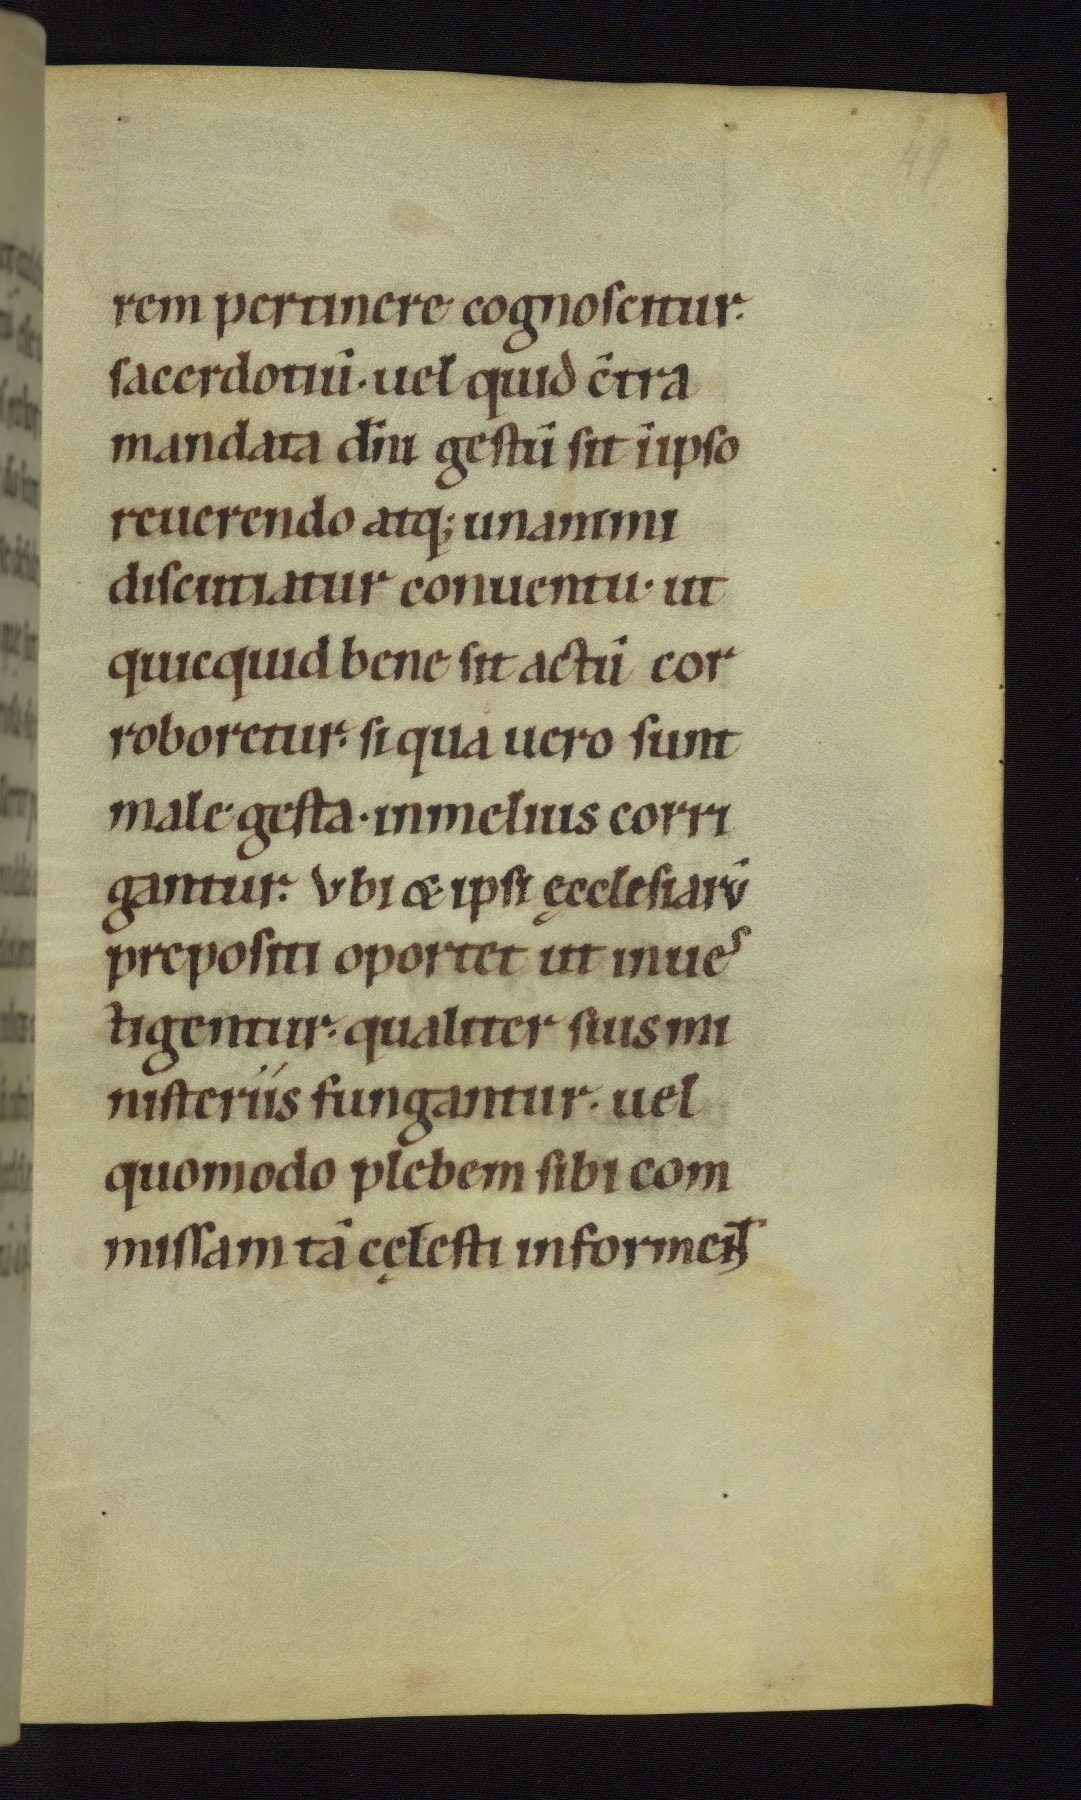 49
rem pertinere cognoscitur.
sacerdotiū. uel quid c̄tra
mandata d̄ni gestū sit īipso
reuerendo atq; unanimi
discutiatur conuentu. ut
quicquid bene sit actū cor
roboretur. si qua uero sunt
male gesta. inmelius corri
gantur. Vbi & ipsi ęcclesiarū
prepositi oportet ut inues
tigentur. qualiter suis mi
nisteriis fungantur. uel
quomodo plebem sibi com
missam tā cęlesti informent